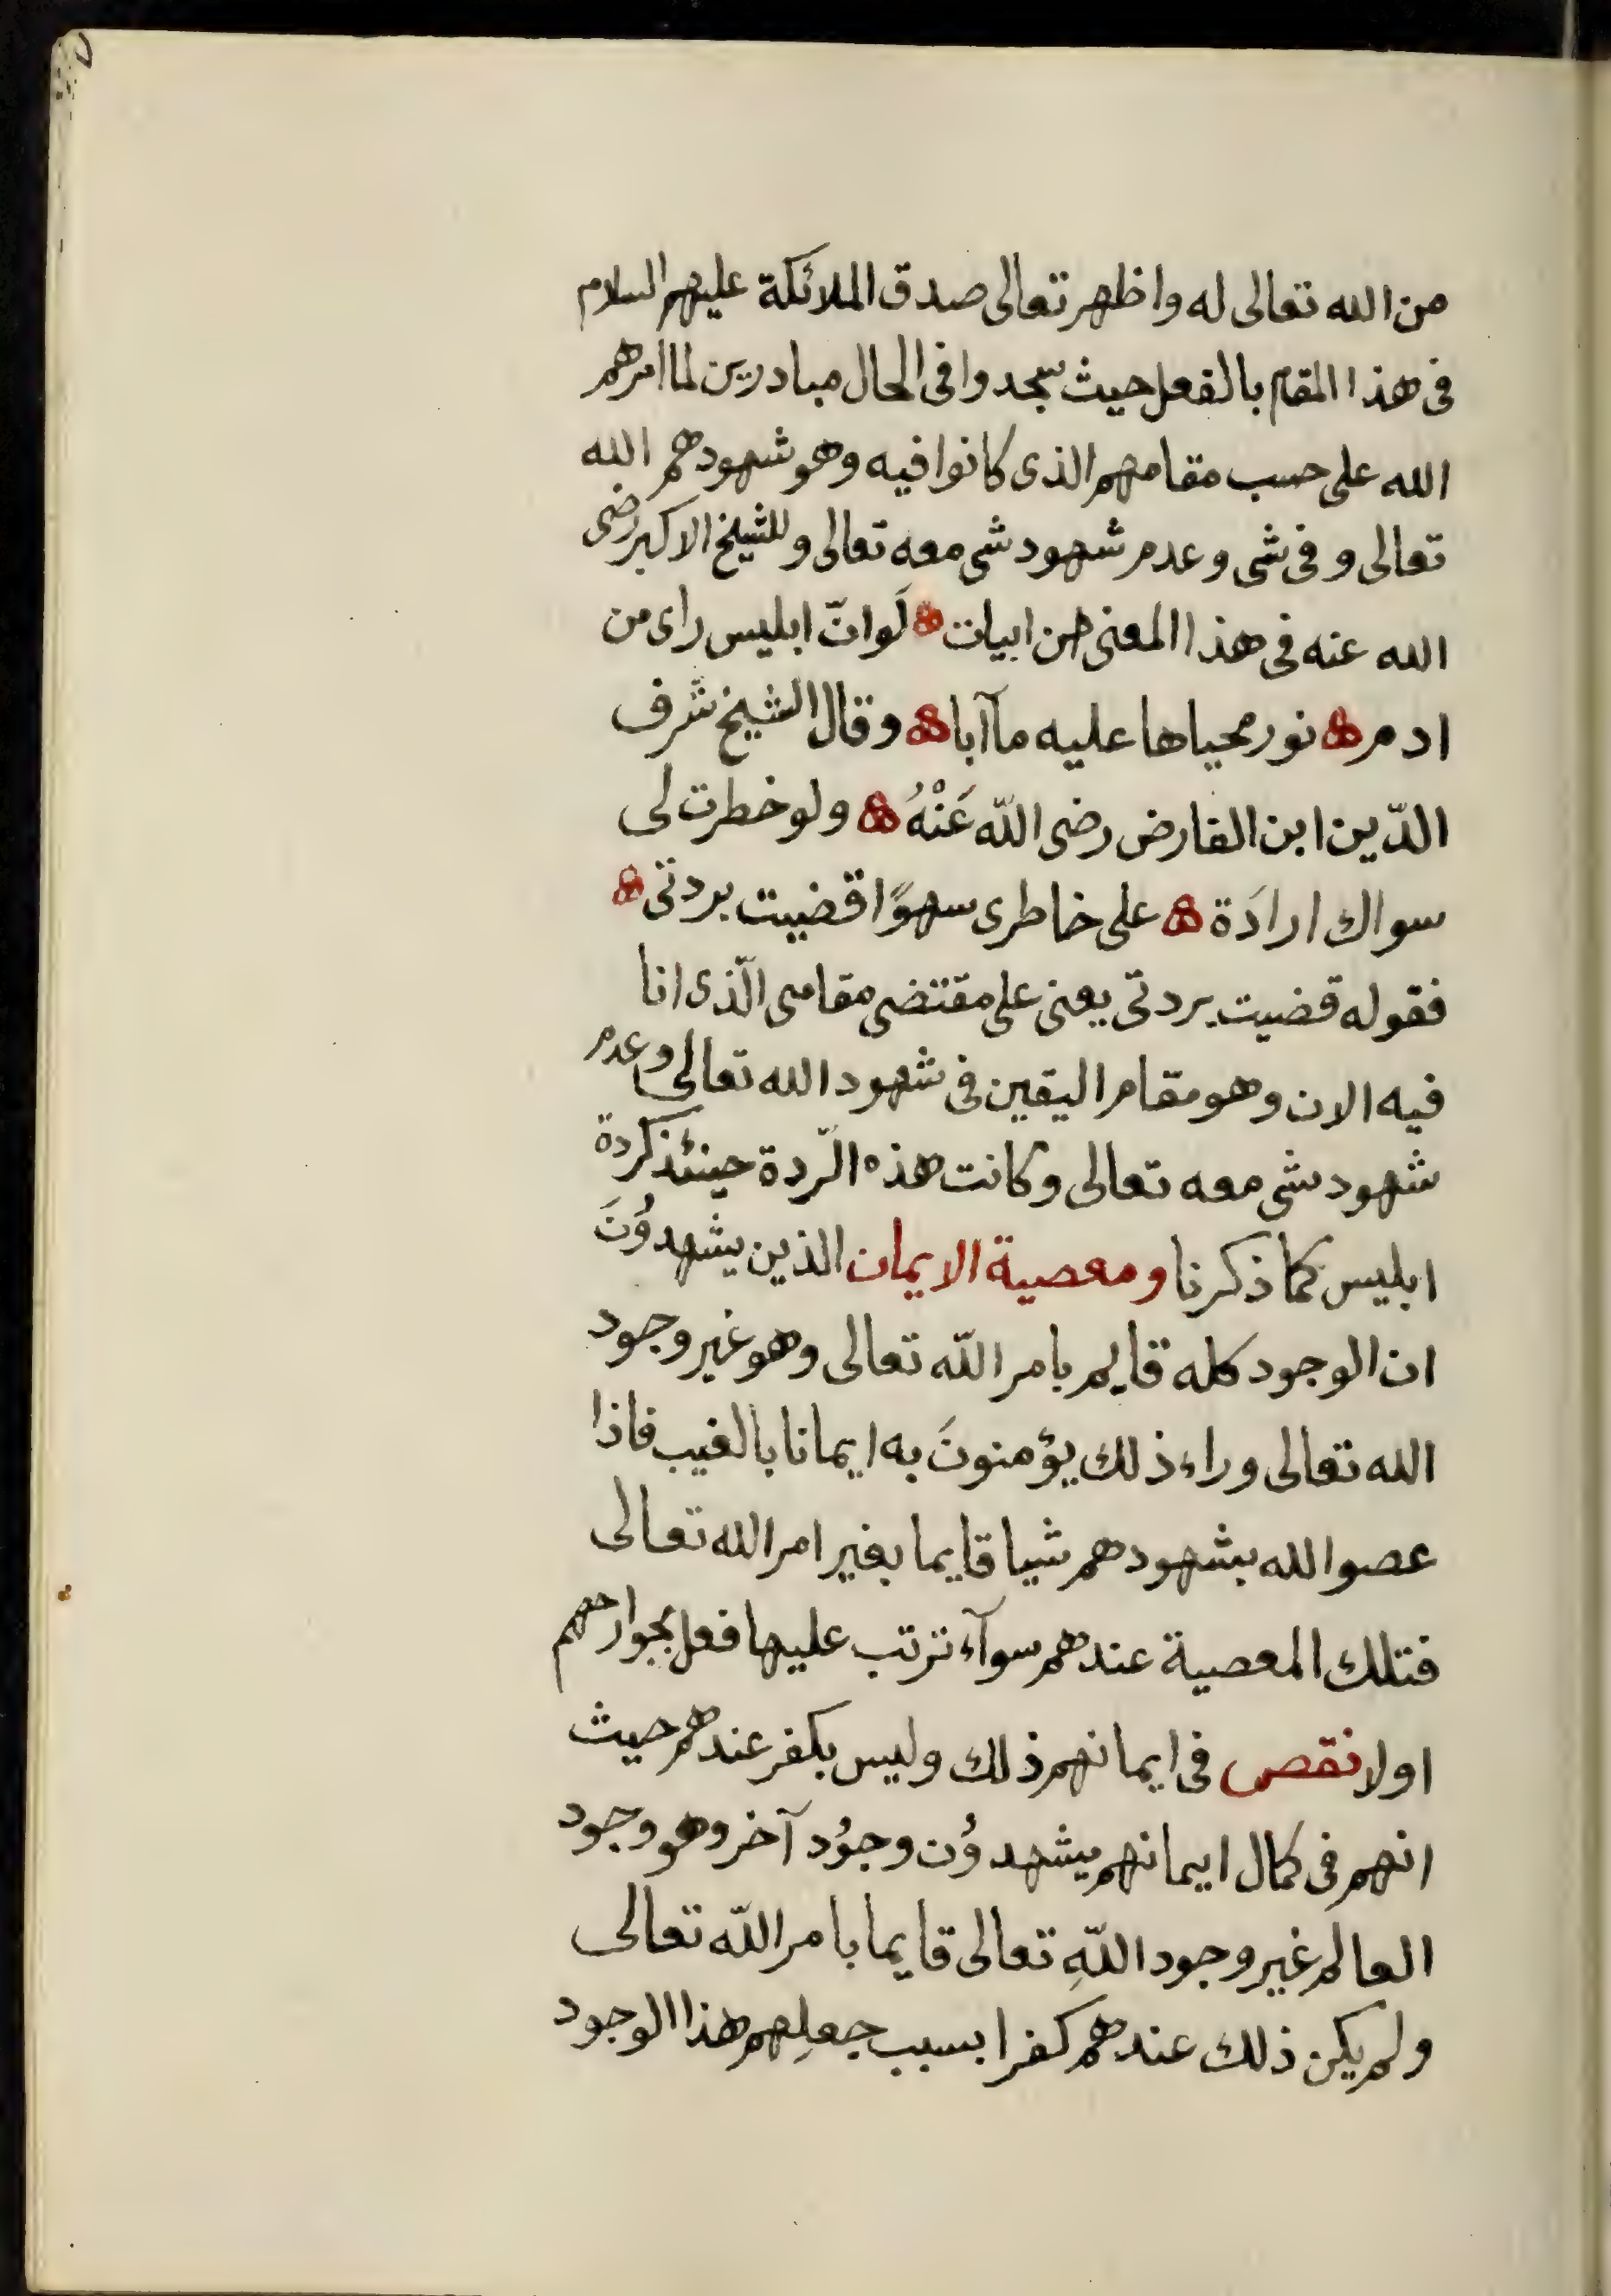 من الله تعالى له واظهر تعالى صدق الملائكة عليهم السلام
فى هذا المقام بالفعل حيث سجدوا فى الحال مبادرين لما امرهم
الله على حسب مقامهم الذى كانوا فيه وهو شهودهم الله
تعالى و فى شى وعدم شهود شى معه تعالى وللشيخ الاكبر رضى
الله عنه فى هذا المعنى من ابيات لَوانّ ابليس راى من
ادم نور محياها عليه ماآبا وقال الشيخ شرف
الدّين ابن الفارض رضى اللّه عَنْهُ ولو خطرت لى
سواك ارادَة على خاطرى سهوًا قضيت بردتى
فقوله قضيت بردتى يعنى على مقتضى مقامى الّذى انا
فيه الان وهو مقام اليقين فى شهود الله تعالى وعدم
شهود شى معه تعالى وكانت هذه الرّدة حينئذ كردة
ابليس كما ذكرنا ومعصية الايمان الذين يشهدوُنَ
ان الوجود كله قايم بامر اللّه تعالى وهو غير وجود
الله تعالى وراء ذلك يؤمنونَ به ايمانا بالغيب فاذا
عصوا الله بشهودهم شيا قايما بغير امر الله تعالى
فتلك المعصية عندهم سوآء ترتب عليها فعل بجوارحهم
اولا نقص فى ايمانهم ذلك وليس بكفر عندهم حيث
انهم فى كمال ايمانهم يشهدوُن وجوُد آخر وهو وجود
العالم غير وجود اللّهِ تعالى قايما بامر اللّه تعالى
ولم يكن ذلك عندهم كفرا بسبب جعلِهم هذا الوجود